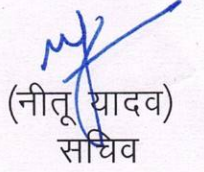 (नीतू यादव)
सचिव